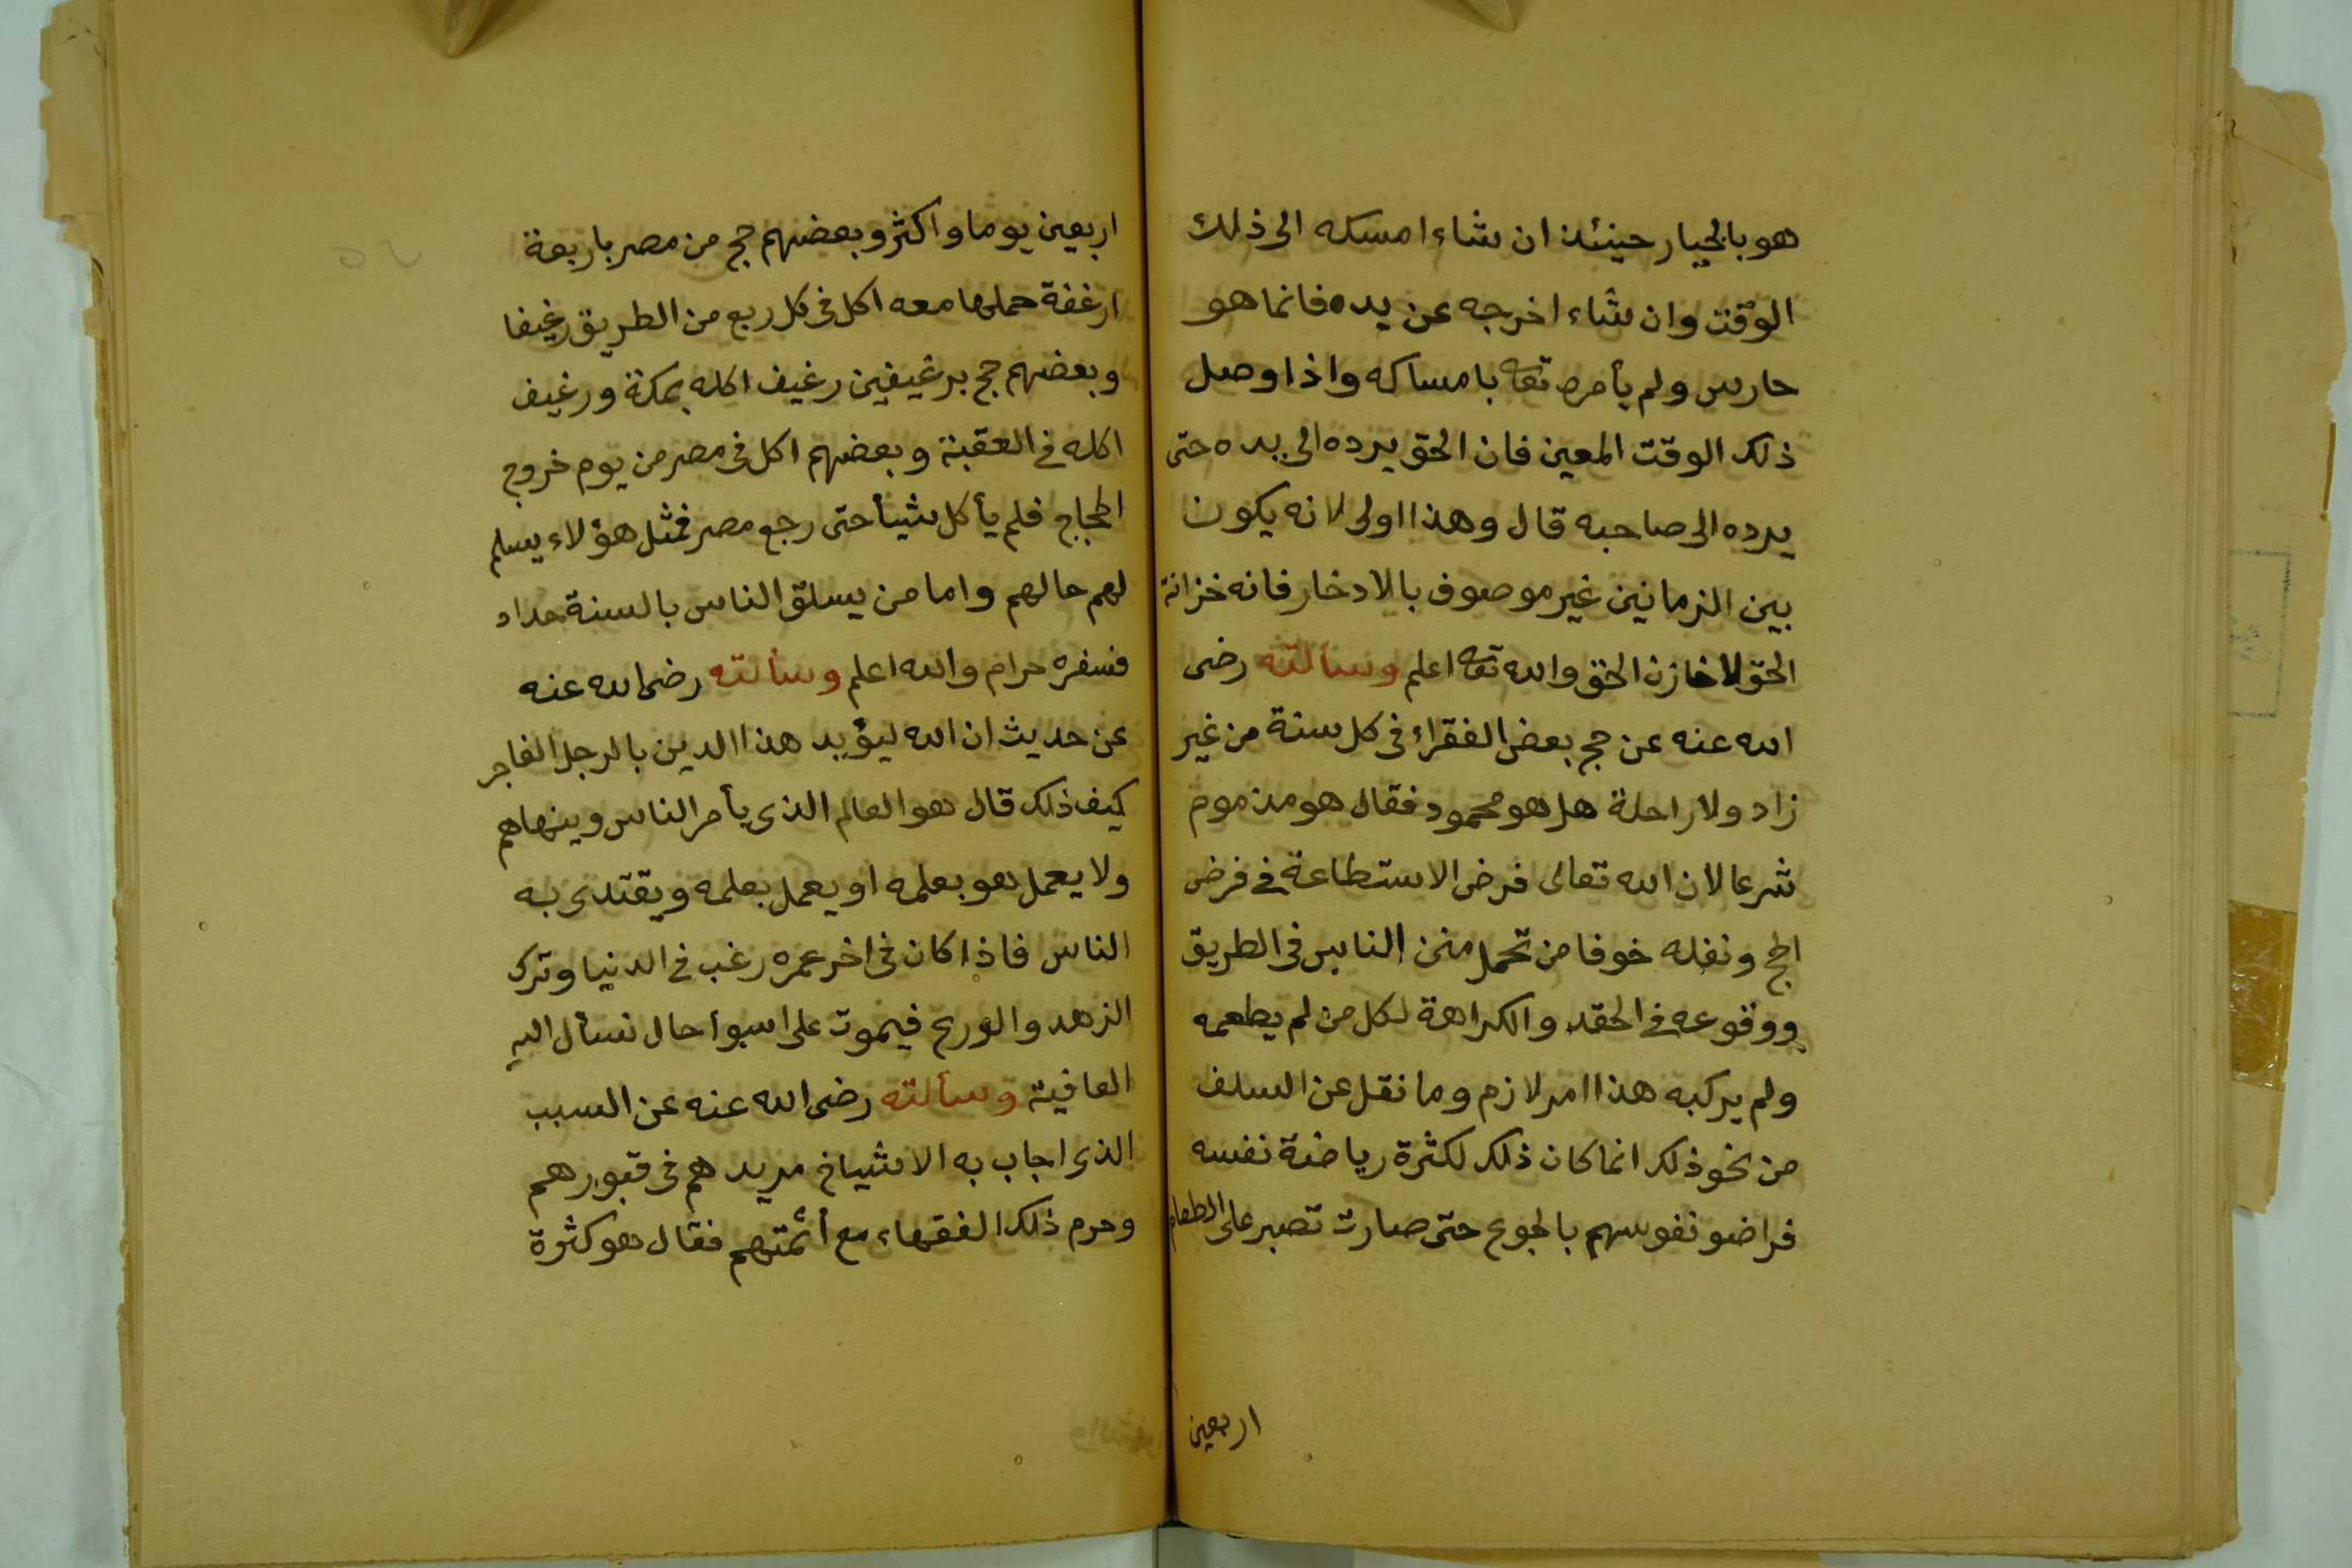 هو بالخيار حينئذ ان شاء امسكه الى ذلك
الوقت وان شاء اخرجه عن يده فانما هو
حارس ولم يأمره تعه بامساكه واذا وصل
ذلك الوقت المعين فان الحق يرده الى يده حتى
يرده الى صاحبه قال وهذا اولى لانه يكون
بين الزمانين غير موصوف بالادخار فانه خزانة
الحق لا خازن الحق والله تعه اعلم وسألته رضى
الله عنه عن حج بعض الفقراء فى كل سنة من غير
زاد ولا راحلة هل هو محمود فقال هو مذموم
شرعا لان الله تعالى فرض الاستطاعة فى فرض
الحج ونفله خوفا من تحمل منن الناس فى الطريق
ووقوعه فى الحقد والكراهة لكل من لم يطعمه
ولم يركبه هذا امر لازم وما نقل عن السلف
من نحو ذلك انما كان ذلك لكثرة رياضة نفسه
فراضو نفوسهم بالجوع حتى صارت تصبر على الطعام
اربعين
اربعين يوما واكثر وبعضهم حج من مصر باربعة
ارغفة حملها معه اكل فى كل ربع من الطريق رغيفا
وبعضهم حج برغيفين رغيف اكله بمكة ورغيف
اكله فى العقبة وبعضهم اكل فى مصر من يوم خروج
الحجاج فلم يأكل شيأ حتى رجع مصر فمثل هؤلاء يسلم
لهم حالهم واما من يسلق الناس بالسنة حداد
فسفره حرام والله اعلم وسألته رضى الله عنه
عن حديث ان الله ليؤيد هذا الدين بالرجل الفاجر
كيف ذلك قال هو العالم الذى يأمر الناس وينهاهم
ولا يعمل هو بعلمه او يعمل بعلمه ويقتدى به
الناس فاذا كان فى اخر عمره رغب فى الدنيا وترك
الزهد والورع فيموت على اسوأ حال نسأل الله
العافية وسألته رضى الله عنه عن السبب
الذى اجاب به الاشياخ مريدهم فى قبورهم
وحرم ذلك الفقهاء مع أئمتهم فقال هو كثرة